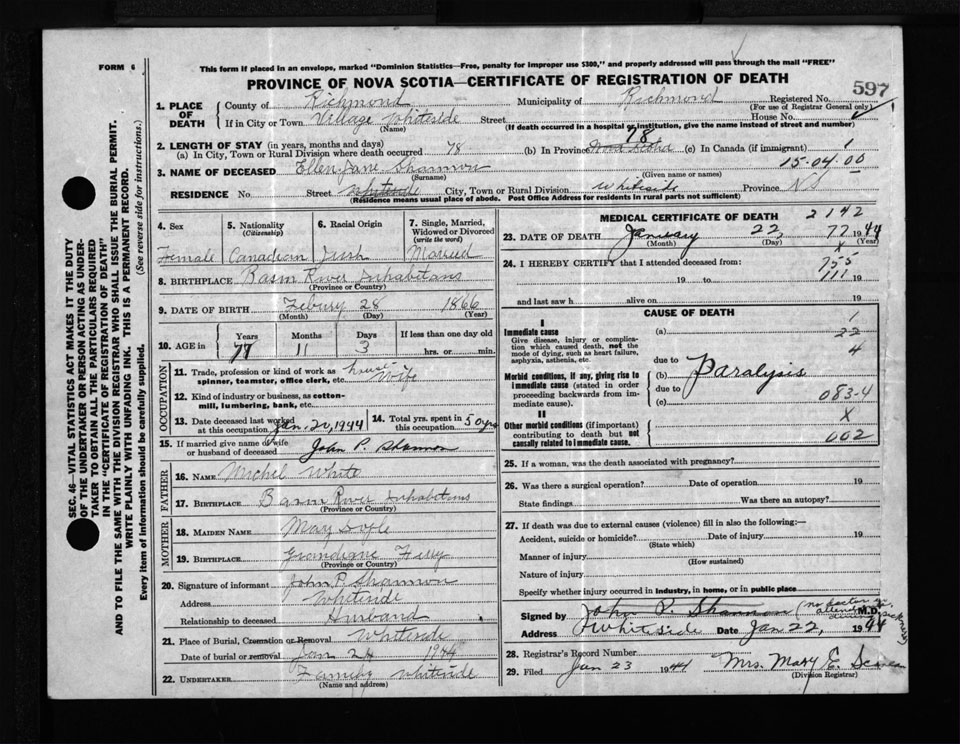 FORM 6
This form if placed in an envelope, marked "Dominion Statistics—Free, penalty for improper use $300," and properly addressed will pass through the mail "FREE"
PROVINCE OF NOVA SCOTIA—CERTIFICATE OF REGISTRATION OF DEATH
597
SEC. 46—VITAL STATISTICS ACT MAKES IT THE DUTY
OF THE UNDERTAKER OR PERSON ACTING AS UNDER-
TAKER TO OBTAIN ALL THE PARTICULARS REQUIRED
IN THE "CERTIFICATE OF REGISTRATION OF DEATH"
AND TO FILE THE SAME WITH THE DIVISION REGISTRAR WHO SHALL ISSUE THE BURIAL PERMIT.
WRITE PLAINLY WITH UNFADING INK. THIS IS A PERMANENT RECORD.
Every item of information should be carefully supplied. (See reverse side for instructions.)
1. PLACE OF DEATH County of Richmond Municipality of Richmond Registered No.
(For use of Registrar General only)
If in City or Town Village Whiteside Street House No.
(Name) (If death occurred in a hospital or institution, give the name instead of street and number)
2. LENGTH OF STAY (in years, months and days) 78
(a) In City, Town or Rural Division where death occurred 78 (b) In Province Nova Scotia (c) In Canada (if immigrant) 1
3. NAME OF DECEASED Ellen Jane Shannon 15-04.00
(Surname) (Given name or names)
RESIDENCE No. Street Whiteside City, Town or Rural Division Whiteside Province NS
(Residence means usual place of abode. Post Office Address for residents in rural parts not sufficient)
4. Sex 5. Nationality (Citizenship) 6. Racial Origin 7. Single, Married, Widowed or Divorced (write the word)
Female Canadian Irish Married
8. BIRTHPLACE Basin River Inhabitans
(Province or Country)
9. DATE OF BIRTH Febury 28 1866
(Month) (Day) (Year)
10. AGE in Years Months Days If less than one day old
77 11 3 hrs. or min.
OCCUPATION
11. Trade, profession or kind of work as spinner, teamster, office clerk, etc. house wife
12. Kind of industry or business, as cotton-mill, lumbering, bank, etc.
13. Date deceased last worked at this occupation Jan. 20, 1944 14. Total yrs. spent in this occupation 50 yrs
15. If married give name of wife or husband of deceased John P. Shannon
FATHER
16. Name Michel White
17. Birthplace Basin River Inhabitans
(Province or Country)
MOTHER
18. Maiden Name May Doyle
19. Birthplace Grandique Ferry
(Province or Country)
20. Signature of informant John P. Shannon
Address Whiteside
Relationship to deceased Husband
21. Place of Burial, Cremation or Removal Whiteside
Date of burial or removal Jan 24 1944
22. UNDERTAKER Whiteside
(Name and address)
MEDICAL CERTIFICATE OF DEATH 2142
23. DATE OF DEATH January 22, 77 1944
(Month) (Day) (Year)
X
24. I HEREBY CERTIFY that I attended deceased from: 755
19 to 111 19
and last saw h alive on 19
CAUSE OF DEATH 1
I
Immediate cause (a) 22
Give disease, injury or complication which caused death, not the mode of dying, such as heart failure, asphyxia, asthenia, etc. 4
due to
Morbid conditions, if any, giving rise to immediate cause (stated in order proceeding backwards from immediate cause). (b) Paralysis
due to 083-4
(c)
II X
Other morbid conditions (if important) contributing to death but not causally related to immediate cause. 002
25. If a woman, was the death associated with pregnancy?
26. Was there a surgical operation? Date of operation 19
State findings Was there an autopsy?
27. If death was due to external causes (violence) fill in also the following:—
Accident, suicide or homicide? Date of injury 19
(State which)
Manner of injury
(How sustained)
Nature of injury
Specify whether injury occurred in industry, in home, or in public place
Signed by John P. Shannon (no doctor in attendance during sickness) M.D.
Address Whiteside Date Jan 22, 1944
28. Registrar's Record Number
29. Filed Jan 23 1944 Mrs. Mary E.
(Division Registrar)